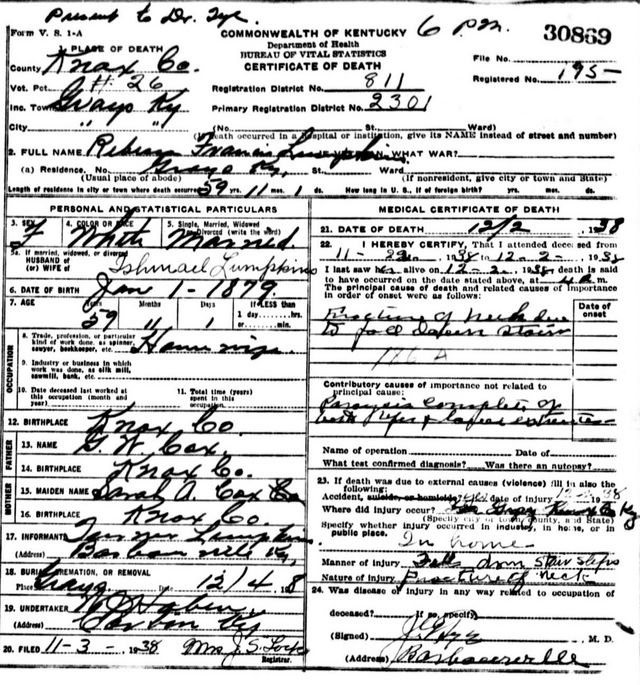 Present to Dr. Tye
6 P.M.
30869
Form V. S. 1-A
COMMONWEALTH OF KENTUCKY
Department of Health
BUREAU OF VITAL STATISTICS
CERTIFICATE OF DEATH
1. PLACE OF DEATH
County Knox Co.
File No.
Registered No. 195-
Vot. Pct. # 26
Registration District No. 811
Inc. Town Grays Ky
Primary Registration District No. 2301
City " "
(No. St. Ward)
(Death occurred in a hospital or institution, give its NAME instead of street and number)
2. FULL NAME Francis Lumpkins WHAT WAR?
(a) Residence. No. St. Ward
(Usual place of abode) (If nonresident, give city or town and State)
Length of residence in city or town where death occurred 59 yrs. 11 mos. 1 ds. How long in U. S., if of foreign birth? yrs. mos. ds.
PERSONAL AND STATISTICAL PARTICULARS
3. SEX F
4. COLOR OR RACE White
5. Single, Married, Widowed or Divorced (write the word) Married
5a. If married, widowed, or divorced
HUSBAND of
(or) WIFE of Ishmael Lumpkins
6. DATE OF BIRTH Jan 1- 1879
7. AGE Years 59 Months 11 Days 1 If LESS than
1 day......hrs.
or......min.
OCCUPATION
8. Trade, profession, or particular
kind of work done, as spinner,
sawyer, bookkeeper, etc.
9. Industry or business in which
work was done, as silk mill,
sawmill, bank, etc.
10. Date deceased last worked at
this occupation (month and
year)
11. Total time (years)
spent in this
occupation
12. BIRTHPLACE Knox Co.
FATHER
13. NAME G. W Cox
14. BIRTHPLACE Knox Co.
MOTHER
15. MAIDEN NAME Sarah A. Cox
16. BIRTHPLACE Knox Co.
17. INFORMANT Lumpkins
(Address) Barbourville Ky,
18. BURIAL, CREMATION, OR REMOVAL
Place Grays 12/4 8
19. UNDERTAKER
(Address) Ky
20. FILED 11-3- 1938 Mrs J. S. Lock
Registrar.
MEDICAL CERTIFICATE OF DEATH
21. DATE OF DEATH 12/2 1938
22. I HEREBY CERTIFY, That I attended deceased from
11- 1938 to 12-2- 1938
I last saw her alive on 12-2- 1938 death is said
to have occurred on the date stated above, at 4 m.
The principal cause of death and related causes of importance
in order of onset were as follows:
Date of
onset
Fracture of neck due
to fall down stairs
186A
Contributory causes of importance not related to
principal cause:
Paralysis complete of
both upper & lower extremities
Name of operation Date of
What test confirmed diagnosis? Was there an autopsy?
23. If death was due to external causes (violence) fill in also the
following:
Accident, suicide, or homicide? yes date of injury 1938
Where did injury occur? Gray Knox Co Ky
(Specify city or town, county, and State)
Specify whether injury occurred in industry, in home, or in
public place.
In home
Manner of injury Falls down stair steps
Nature of injury Fracture of neck
24. Was disease or injury in any way related to occupation of
deceased? If so, specify
(Signed) Tye M. D.
(Address) Barbourville